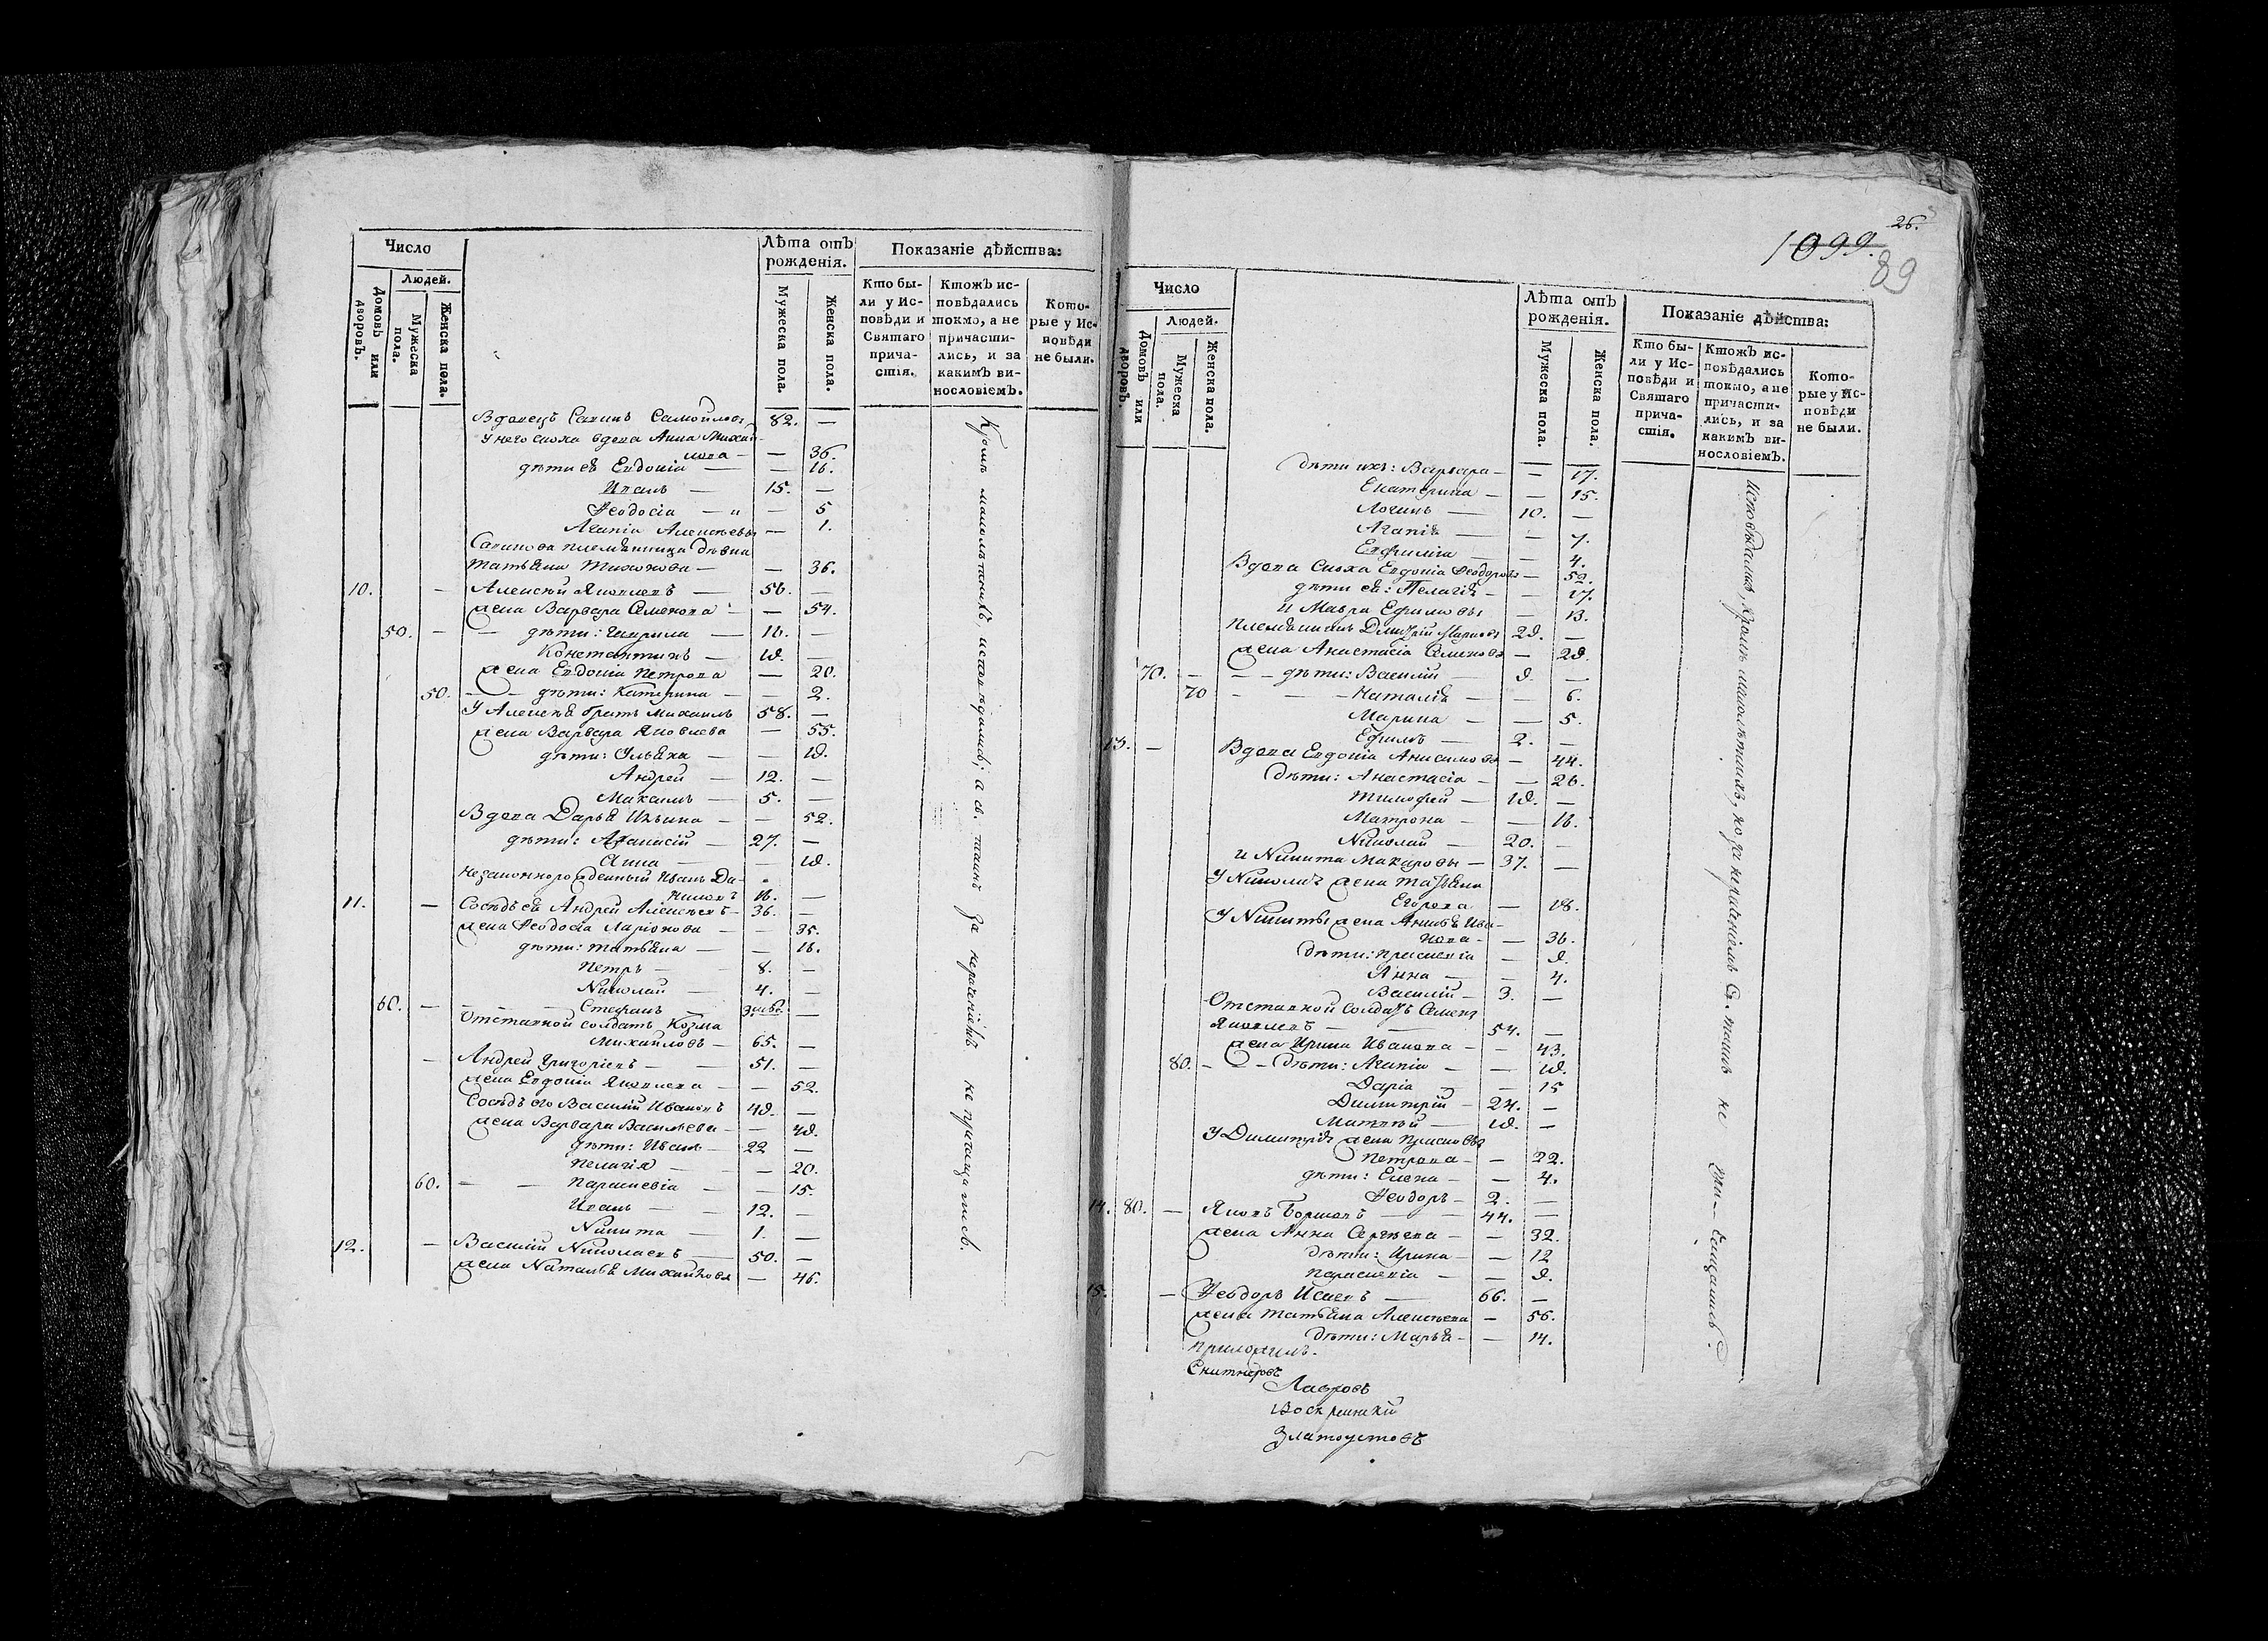 Число
Людей.
Домовъ или дворовъ.
Мужеска пола.
Женска пола.
Лѣта отъ рожденія.
Мужеска пола.
Женска пола.
Показаніе дѣйства:
Кто бы-
ли у Ис-
повѣди и
Святаго
прича-
стія.
Ктожъ ис-
повѣдались
токмо, а не
причасти-
лись, и за
какимъ ви-
нословіемъ.
Кото-
рые у Ис-
повѣди
не были.
Вдовецъ Савинъ Самойловъ 82. —
У него сноха вдова Анна Михай-
лова — — 36.
дѣти ея Евдокія — — 16.
Иванъ — 15. —
Ѳеодосіа — — 5
Агапіа Алексѣевы — 1.
Савинова племянница дѣвка
Татьяна Тихонова — — 36.
10. — Алексѣй Яковлевъ — 56. —
жена Варвара Семенова — — 54.
50. — — дѣти: Гаврила — 16. —
Константинъ — 19. —
жена Евдокіа Петрова — 20.
50. — — дѣти: Катерина — — 2.
У Алексѣя братъ Михаилъ 58. —
жена Варвара Яковлева — 55.
дѣти: Ульяна — — 19.
Андрей — 12. —
Максимъ — 5. —
Вдова Дарья Ильина — — 52.
дѣти: Аѳанасій — 27. —
Анна — — 19.
Незаконнорожденный Иванъ Да-
ниловъ 16. —
11. — Сосѣдъ ея Андрей Алексѣевъ — 36. —
жена Ѳеодосіа Ларіонова — — 35.
дѣти: Татьяна — — 16.
Петръ — 8. —
Николай — 4. —
60. — — Стефанъ — —
Отставной солдатъ Козма
Михайловъ — 65. —
— Андрей Григорьевъ — 51. —
жена Евдокіа Яковлева — — 52.
Сосѣдъ его Василій Ивановъ 49. —
жена Варвара Васильева — — 49.
дѣти: Иванъ — 22 —
Пелагія — — 20.
60. — — Параскевіа — — 15.
Иванъ — 12. —
Никита — 1. —
12. — Василій Николаевъ — 50. —
жена Наталья Михайлова — 46.
Кромѣ малолѣтнихъ, исповѣдались; а св. таинъ за нераченіемъ не причащались.
26.
1099.
89
Число
Людей.
Домовъ или дворовъ.
Мужеска пола.
Женска пола.
Лѣта отъ рожденія.
Мужеска пола.
Женска пола.
Показаніе дѣйства:
Кто бы-
ли у Ис-
повѣди и
Святаго
прича-
стія.
Ктожъ ис-
повѣдались
токмо, а не
причасти-
лись, и за
какимъ ви-
нословіемъ.
Кото-
рые у Ис-
повѣди
не были.
дѣти ихъ: Варвара — — 17.
Екатерина — — 15.
Логинъ — 10. —
Агапія — — 7.
Евфиміа — — 4.
Вдова Сноха Евдокіа Ѳеодорова — 52.
дѣти ея: Пелагія — — 17.
и Мавра Ефимовы — 13.
племянникъ Дмитрій Марковъ 29. —
жена Анастасіа Семенова — 29.
70. — — дѣти: Василій — 9. —
70 — — — Наталія — — 6.
Марина — — 5.
Ефимъ — 2. —
13. — Вдова Евдокіа Анисимова — 44.
дѣти: Анастасіа — — 26.
Тимофей — 19. —
Матрона — — 16.
Николай — 20. —
и Никита Макаровы — 37. —
У Николая жена Татьяна
Егорова — 18.
У Никиты жена Анисья Ива-
нова — — 36.
дѣти: Прасковіа — 9.
Анна — — 4.
Василій — 3. —
Отставной солдатъ Семенъ
Яковлевъ — 54. —
жена Ирина Иванова — — 43.
80. — — дѣти: Агапіа — — 19.
Даріа — — 15
Димитрій — 24. —
Матвей — 19. —
У Димитрія жена Прасковья
Петрова — — 22.
дѣти: Елена — — 4.
Ѳеодоръ — 2. —
14. 80. — Яковъ — 44. —
жена Анна Сергѣева — — 32.
дѣти: Ирина — — 12
Параскевіа — — 9.
15. — Ѳеодоръ Исаевъ — 66. —
жена Татьяна Алексѣева — 56.
дѣти: Марья — — 14.
Исповѣдались, кромѣ малолѣтнихъ, но за нераченіемъ Св. таинъ не при-чащались.
Лавровъ
Златоустовъ